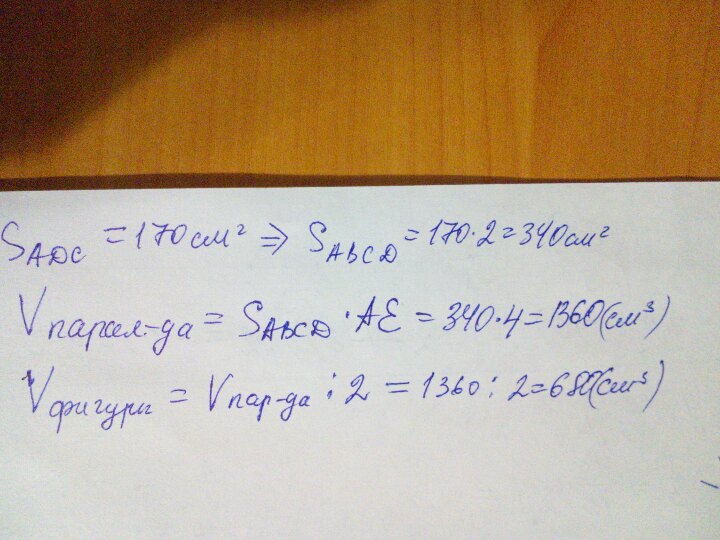 S ADC = 170 см² ⇒ S ABCD = 170·2=340 см²
V парал-да = S ABCD · AE = 340·4=1360(см³)
V фигуры = V пар-да : 2 = 1360 : 2=680(см³)